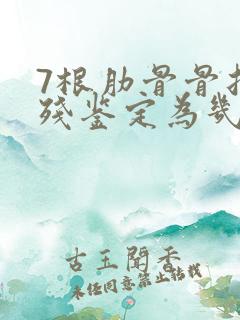 7根肋骨骨折
残鉴定为几
古玉闻香
未经同意禁止转载